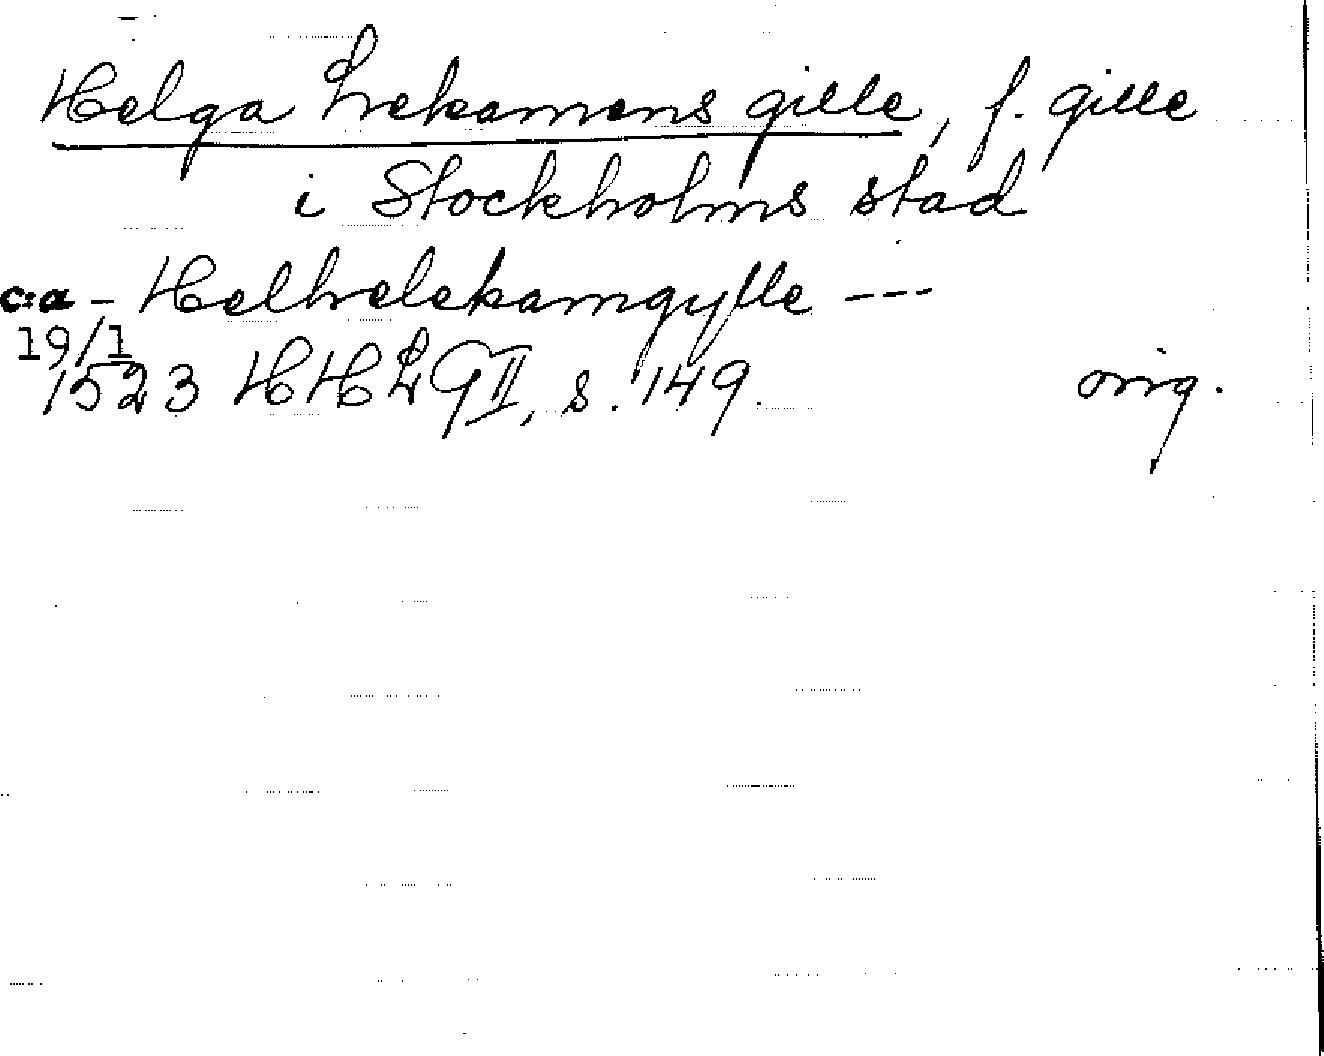 Helga Lekamens gille, f. gille
i Stockholms stad
c:a - Helhelekamgylle ---
19/1
1523 HHLG II, s. 149. orig.